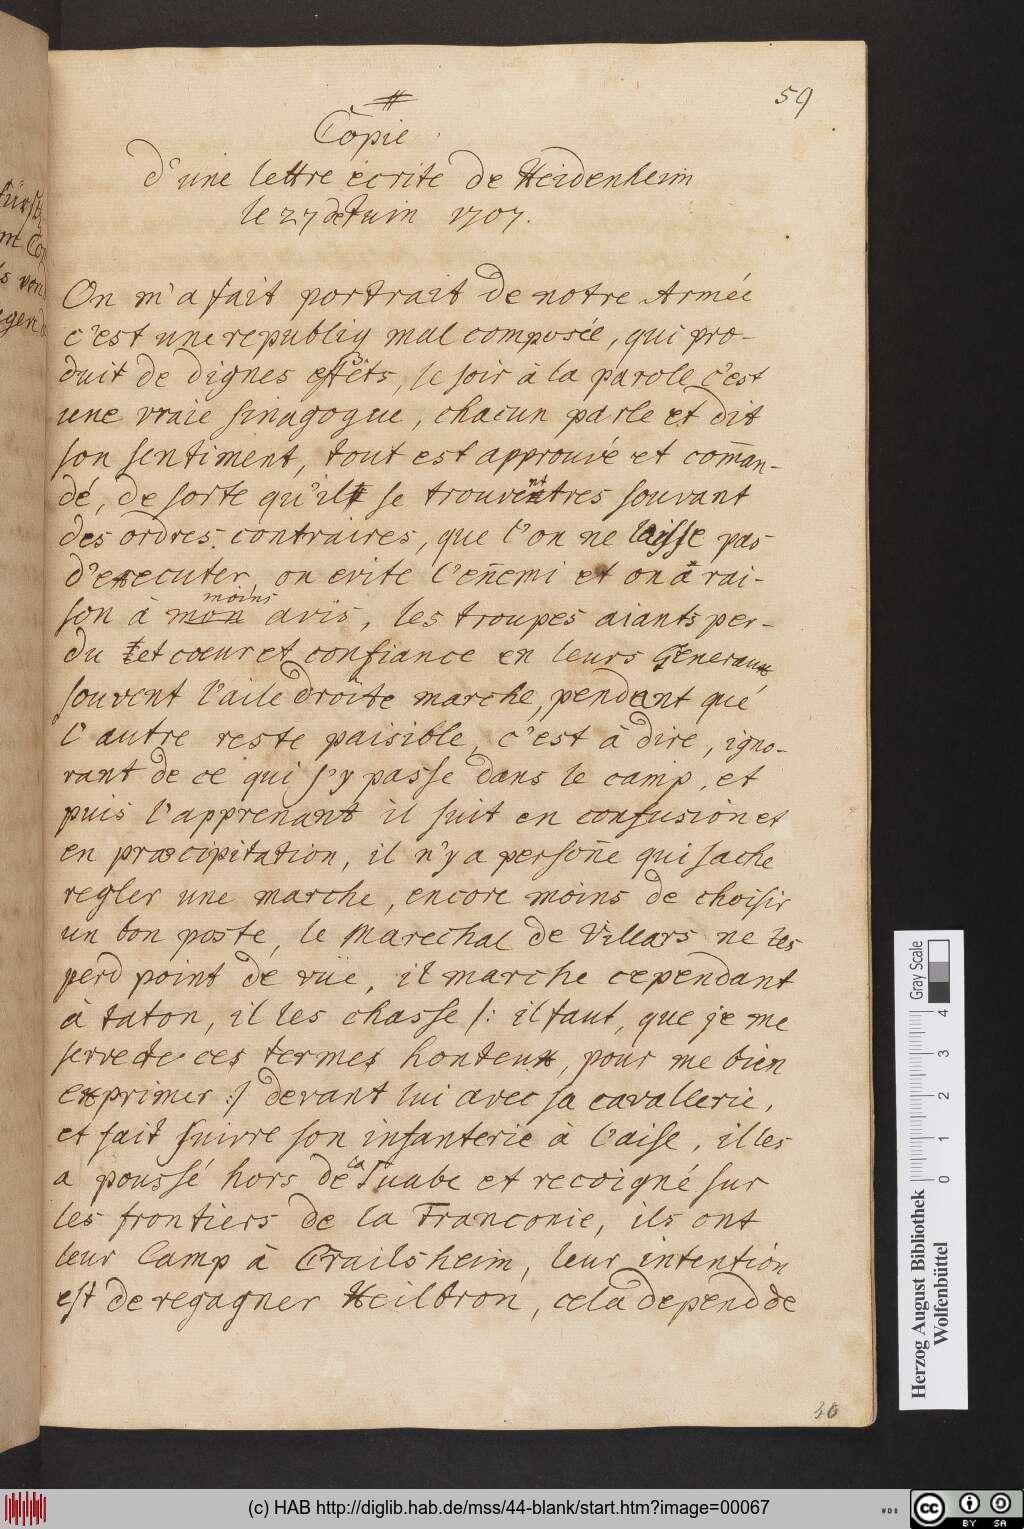 59
Copie
d'une lettre ecrite de Heidenheim
le 27 de Juin 1707.
On m'a fait portrait de notre Armée
c'est une republiq mal composée, qui pro-
duit de dignes effets, le soir à la parole c'est
une vraie sinagogue, chacun parle et dit
son sentiment, tout est approuvé et com̄an-
dé, de sorte qu'il se trouvent tres souvant
des ordres contraires, que l'on ne laisse pas
d'executer, on evite l'en̄emi et on à rai-
son à mon avïs, les troupes aiants per-
moins
du et cœur et confiance en leurs Generaux
souvent l'aile droite marche, pendant qué
l'autre reste paisible, c'est à dire, igno-
rant de ce qui s'y passe dans le camp, et
puis l'apprenant il suit en confusion et
en præcipitation, il n'y a person̄e qui sache
regler une marche, encore moins de choisir
un bon poste, le Marechal de Villars ne les
perd point de vüe, il marche cependant
à taton, il les chasse /: il faut, que je me
serve de ces termes honteux, pour me bien
exprimer :/ devant lui avec sa cavallerie,
et fait suivre son infanterie à l'aise, il les
a poussé hors de la Suabe et recoigné sur
les frontiers de la Franconie, ils ont
leur Camp à Crailsheim, leur intention
est de regagner Heilbron, cela depend de
36
fürst
nt Co
s von
gen
Herzog August Bibliothek
Wolfenbüttel
Gray Scale
0 1 2 3 4
(c) HAB http://diglib.hab.de/mss/44-blank/start.htm?image=00067
WDB
cc BY SA